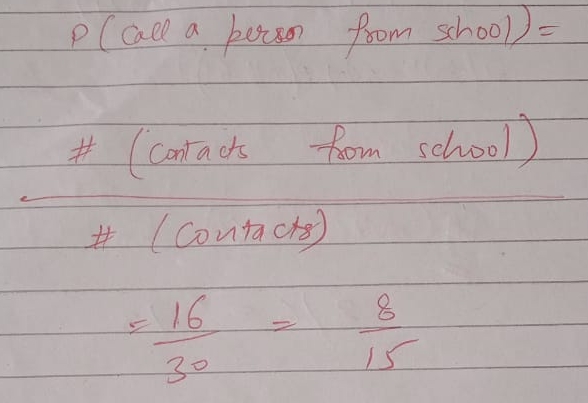 P(Call a person from school) =
# (Contacts from school)
# (Contacts)
= 16/30 = 8/15